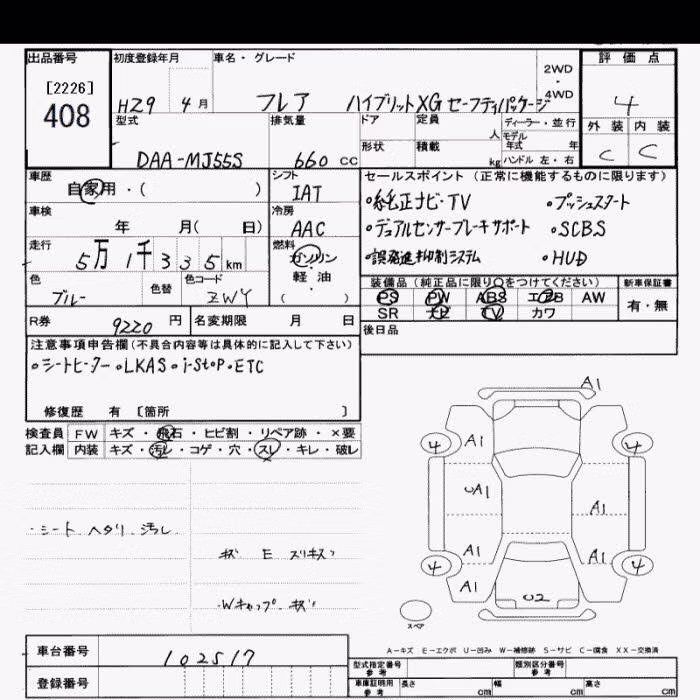 出品番号 初度登録年月 車名・グレード 2WD・4WD 評価点
[2226] 408 H29 4月 フレア ハイブリットXG セーフティパッケージ 4
型式 排気量 ドア 定員 人 ディーラー・並行 外装 内装
モデル年式 年
DAA-MJ55S 660 CC 形状 積載 kg ハンドル 左・右 C C
車歴 シフト セールスポイント(正常に機能するものに限ります)
自家用・( ) IAT ・純正ナビ・TV ・プッシュスタート
車検 冷房
年 月( 日) AAC ・デュアルセンサーブレーキサポート ・SCBS
走行 燃料
5万1千335km ガソリン ・誤発進抑制システム ・HUD
軽・油
( )
色 色替 色コード 装備品(純正品に限り○をつけてください) 新車保証書
ブルー ZWY PS PW ABS エアB AW 有・無
R券 9220円 名変期限 月 日 SR ナビ TV カワ
後日品
注意事項申告欄(不具合内容等は具体的に記入して下さい)
・シートヒーター・LKAS・i-stop・ETC
修復歴 有 [箇所 ]
検査員 FW キズ・飛石・ヒビ割・リペア跡・×要
記入欄 内装 キズ・汚レ・コゲ・穴・スレ・キレ・破レ
A1
4 A1 4
UA1 A1
・シート ヘタリ、汚レ
A1 A1
4 4
A1
・Wキャップ キズ
U2
スペア
A-キズ E-エクボ U-凹み W-補修跡 S-サビ C-腐食 XX-交換済
車台番号 102517
型式指定番号 参考 類別区分番号 参考
登録番号
車庫証明用 参考 長さ cm 幅 cm 高さ cm